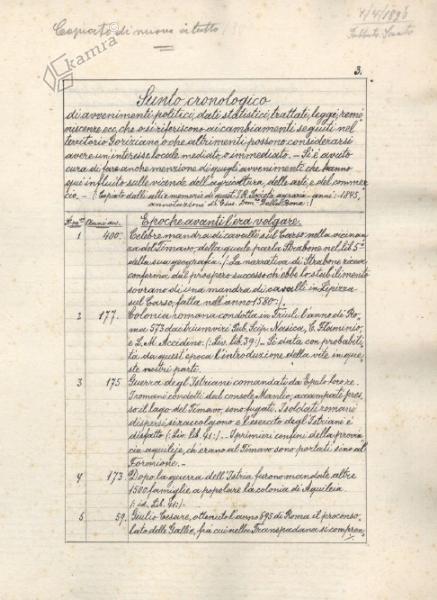 Copiato di nuovo in tutto
4/4/1898
Sabbato Santo
kamra
3.
Sunto cronologico
di avvenimenti politici, dati statistici, trattati, leggi, remi
niscenze ecc. che o si riferiscono ai cambiamenti seguiti nel
territorio Goriziano, o che altrimenti possono considerarsi
avere un interesse locale mediato, o immediato. – Si è avuto
cura di fare anche menzione di quegli avvenimenti che hanno
qui influito sulle vicende dell'agricoltura, delle arti, e del commer
cio. – (Copiato dalle altre memorie di quest' I.R. Società agraria anni: 1845,
annotazioni di Gius. Dom.co Della Bona:)
Anni av. Epoche avanti l'era volgare.
1 400. Celebre mandra di cavalli sul Carso nella vicinan
za del Timavo, della quale parla Strabone nel lib. 5°
della sua geografia. (La narrativa di Strabone riceve
conferma dal prospero successo ch'ebbe lo stabilimento
sovrano di una mandra di cavalli in Lipizza
sul Carso, fatta nell'anno 1580:).
2 177. Colonia romana condotta in Friuli l'anno di Ro
ma 573 dai triumviri Pub. Scip. Nasica, C. Flaminio,
e L. M. Accidino. (: Liv. lib. 39:) – Si data con probabili
tà da quest'epoca l'introduzione della vite in que
ste nostri parti.
3 175 Guerra degl'Istriani comandati da Epulo loro re.
I romani condotti dal console Manlio, accampati pres
so il lago del Timavo, sono fugati. I soldati romani
dispersi si raccolgono e l'esercito degl'Istriani è
disfatto (: Liv. lib. 41:). – I primieri confini della provin
cia aquileja, ch'erano al Timavo sono portati sino al
Formione. –
4 173. Dopo la guerra dell'Istria furono mandate altre
1500 famiglie a popolare la colonia di Aquileia
(: id. Lib. 41:) –
5. 59. Giulio Cesare, ottenuto l'anno 695 di Roma il proconso
lato delle Gallie, fra cui nella Transpadana si compren,